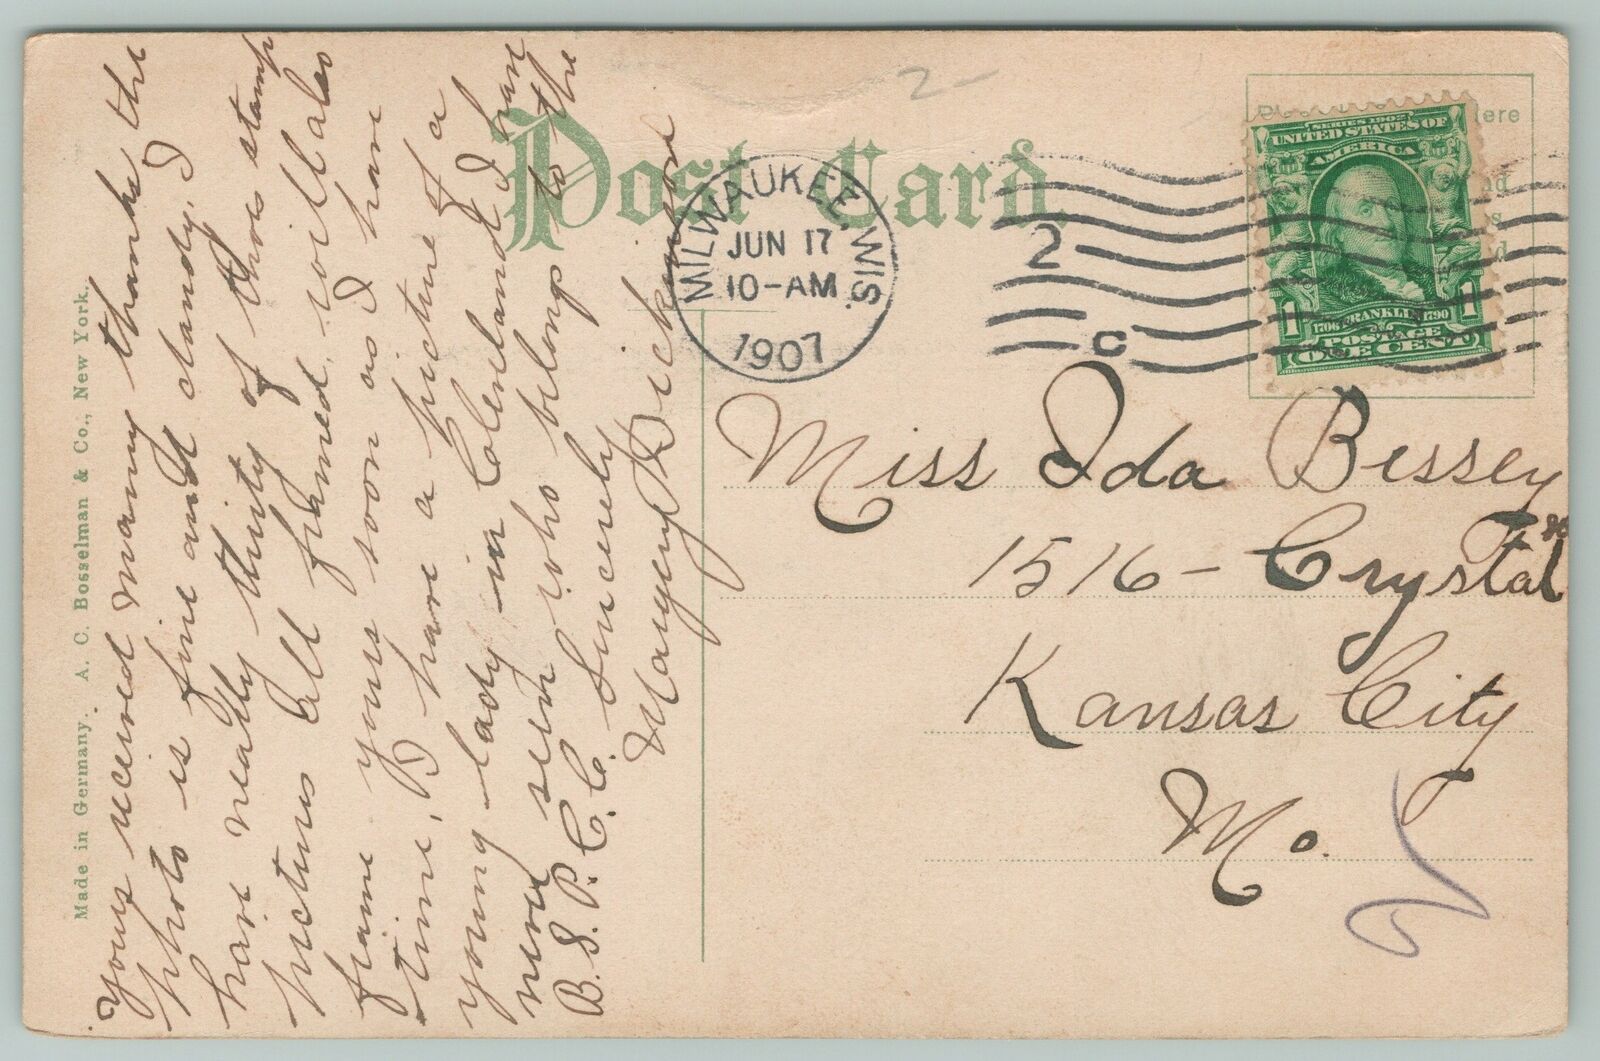 Post Card.
Made in Germany. A. C. Bosselman & Co., New York.
MILWAUKEE, WIS.
JUN 17
10-AM
1907
2
C
SERIES 1902
UNITED STATES OF
AMERICA
1 1
1706 FRANKLIN 1790
POSTAGE
ONE CENT
Here
2-
Yours received many thanks the
photo is fine and dandy, I
have nearly thirty of those stamp
pictures all framed, will also
frame yours soon as I have
time, I have a picture of a
young lady in Cleveland I have
never seen who belongs to the
B. S. P. C. C. Sincerely
Dickinson
Miss Ida Bessey
1516 - Crystal
Kansas City
Mo.
2